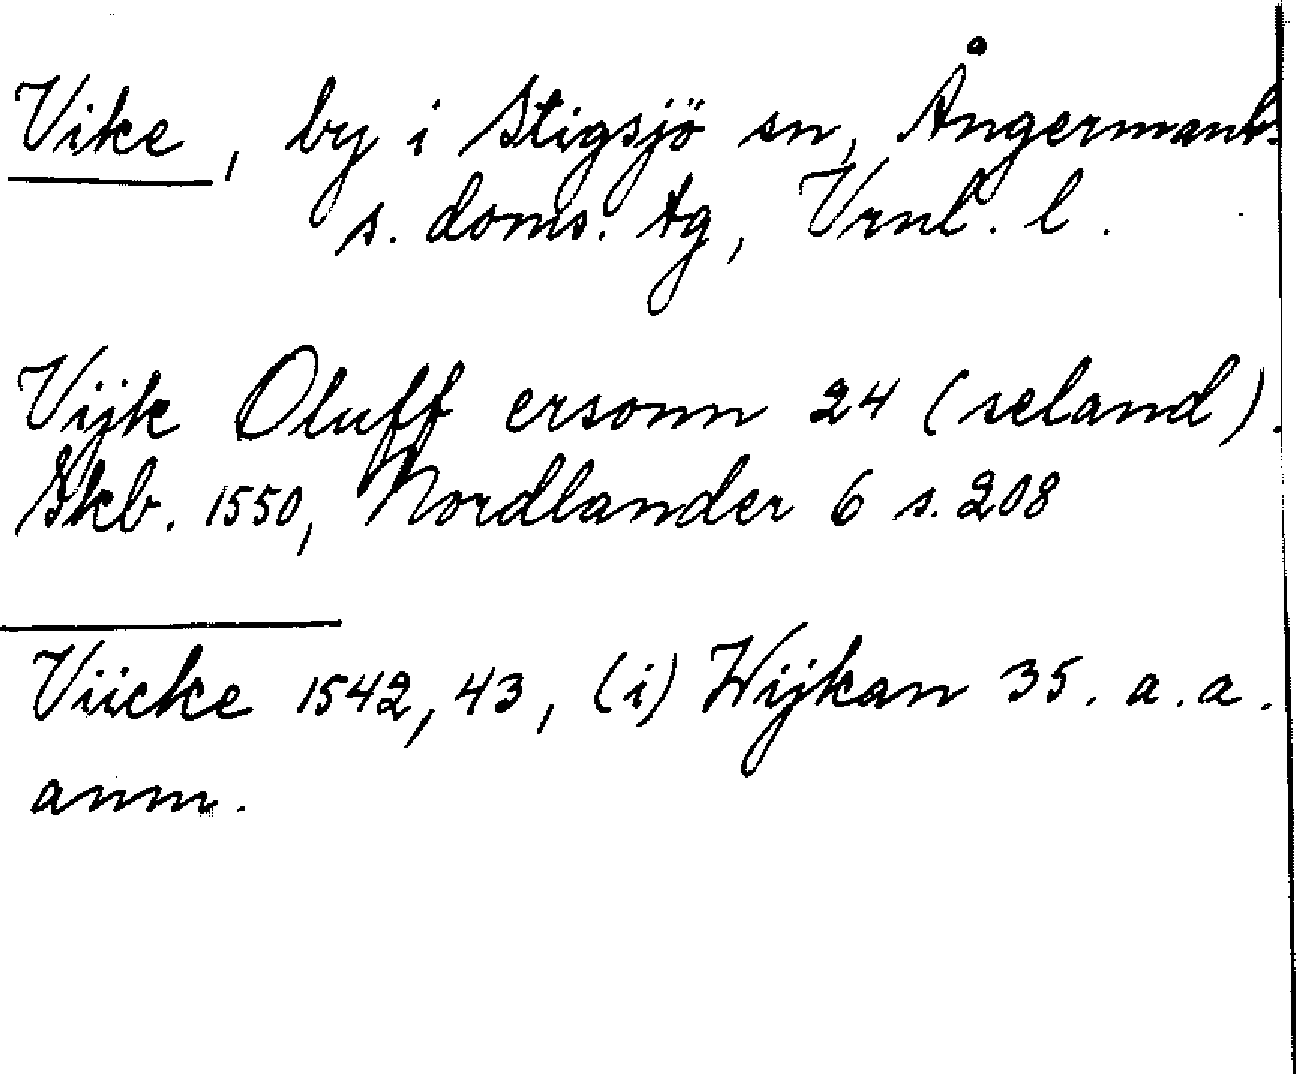 Vike, by i Stigsjö sn, Ångermanl:s
s. doms. tg, Vrnl. l.
Vijk Oluff ersonn 24 (seland).
Skb. 1550, Nordlander 6 s. 208
Viicke 1542, 43, (i) Wijkan 35. a.a.
anm.